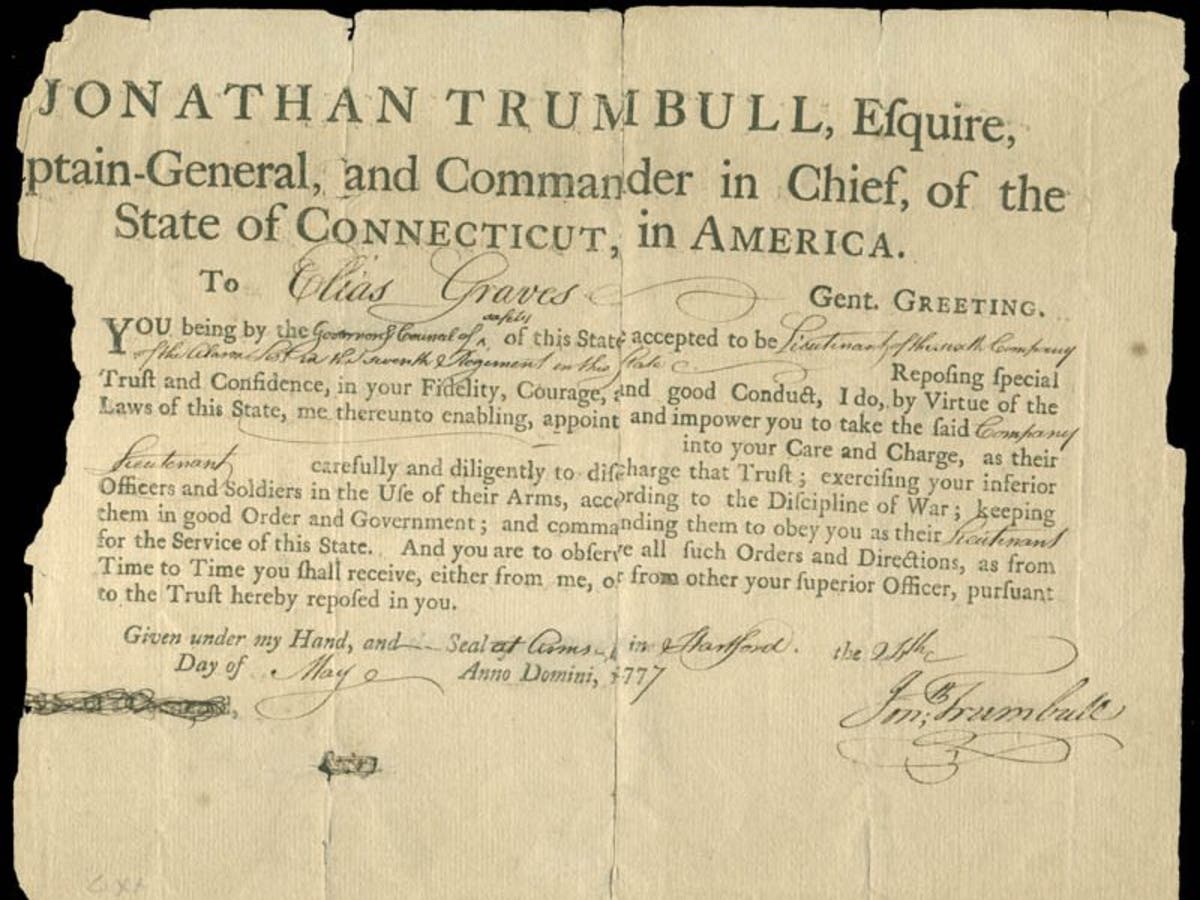 JONATHAN TRUMBULL, Eſquire,
ptain-General, and Commander in Chief, of the
State of CONNECTICUT, in AMERICA.
To Elias Graves Gent. GREETING.
safety
YOU being by the Governor & Council of ‸ of this State accepted to be Lieutenant of the sixth Company
of the Alarm List in the seventh Regiment in this State Repoſing ſpecial
Truſt and Confidence, in your Fidelity, Courage, and good Conduct, I do, by Virtue of the
Laws of this State, me thereunto enabling, appoint and impower you to take the ſaid Company
into your Care and Charge, as their
Lieutenant carefully and diligently to diſcharge that Truſt; exerciſing your inferior
Officers and Soldiers in the Uſe of their Arms, according to the Diſcipline of War; keeping
them in good Order and Government; and commanding them to obey you as their Lieutenant
for the Service of this State. And you are to obſerve all ſuch Orders and Directions, as from
Time to Time you ſhall receive, either from me, or from other your ſuperior Officer, purſuant
to the Truſt hereby repoſed in you.
Given under my Hand, and Seal at Arms in Hartford. the
Day of May Anno Domini, 1777
Jonth; Trumbull